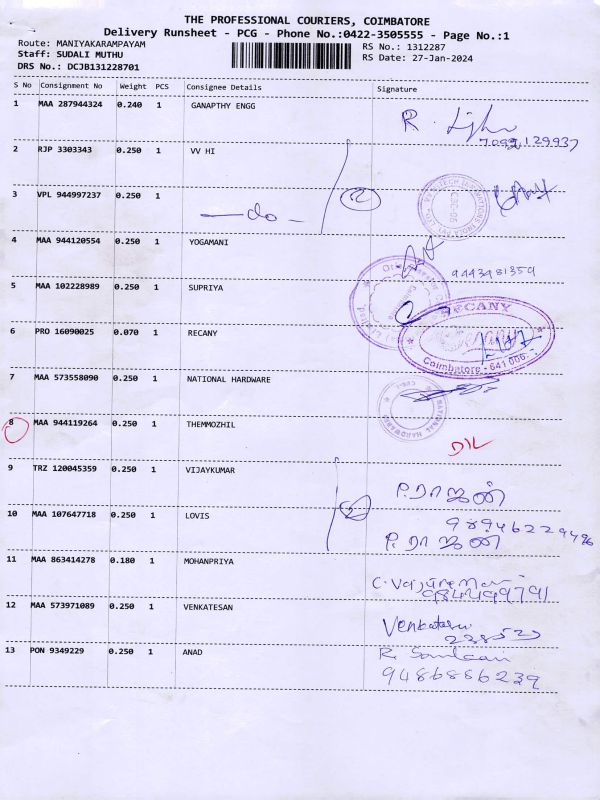 THE PROFESSIONAL COURIERS, COIMBATORE
Delivery Runsheet - PCG - Phone No.:0422-3505555 - Page No.:1
Route: MANIYAKARAMPAYAM
RS No.: 1312287
Staff: SUDALI MUTHU
RS Date: 27-Jan-2024
DRS No.: DCJB131228701
S No Consignment No Weight PCS Consignee Details Signature
1 MAA 287944324 0.240 1 GANAPTHY ENGG
R.
2 RJP 3303343 0.250 1 VV HI
3 VPL 944997237 0.250 1 —do—
4 MAA 944120554 0.250 1 YOGAMANI
9443981359
5 MAA 102228989 0.250 1 SUPRIYA
RECANY
Coimbatore - 641 006.
6 PRO 16090025 0.070 1 RECANY
7 MAA 573558090 0.250 1 NATIONAL HARDWARE
NATIONAL HARDWARE
8 MAA 944119264 0.250 1 THEMMOZHIL
D/L
9 TRZ 120045359 0.250 1 VIJAYKUMAR
P.ராஜன்
10 MAA 107647718 0.250 1 LOVIS
98946229496
P.ராஜன்
11 MAA 863414278 0.180 1 MOHANPRIYA
12 MAA 573971089 0.250 1 VENKATESAN
13 PON 9349229 0.250 1 ANAD
9486886239